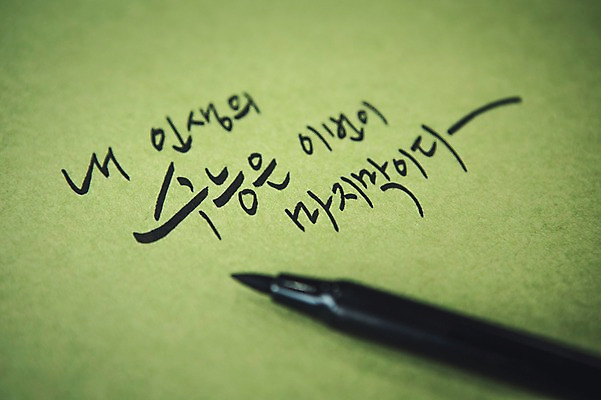 내 인생의
수능은 이번이
마지막이다